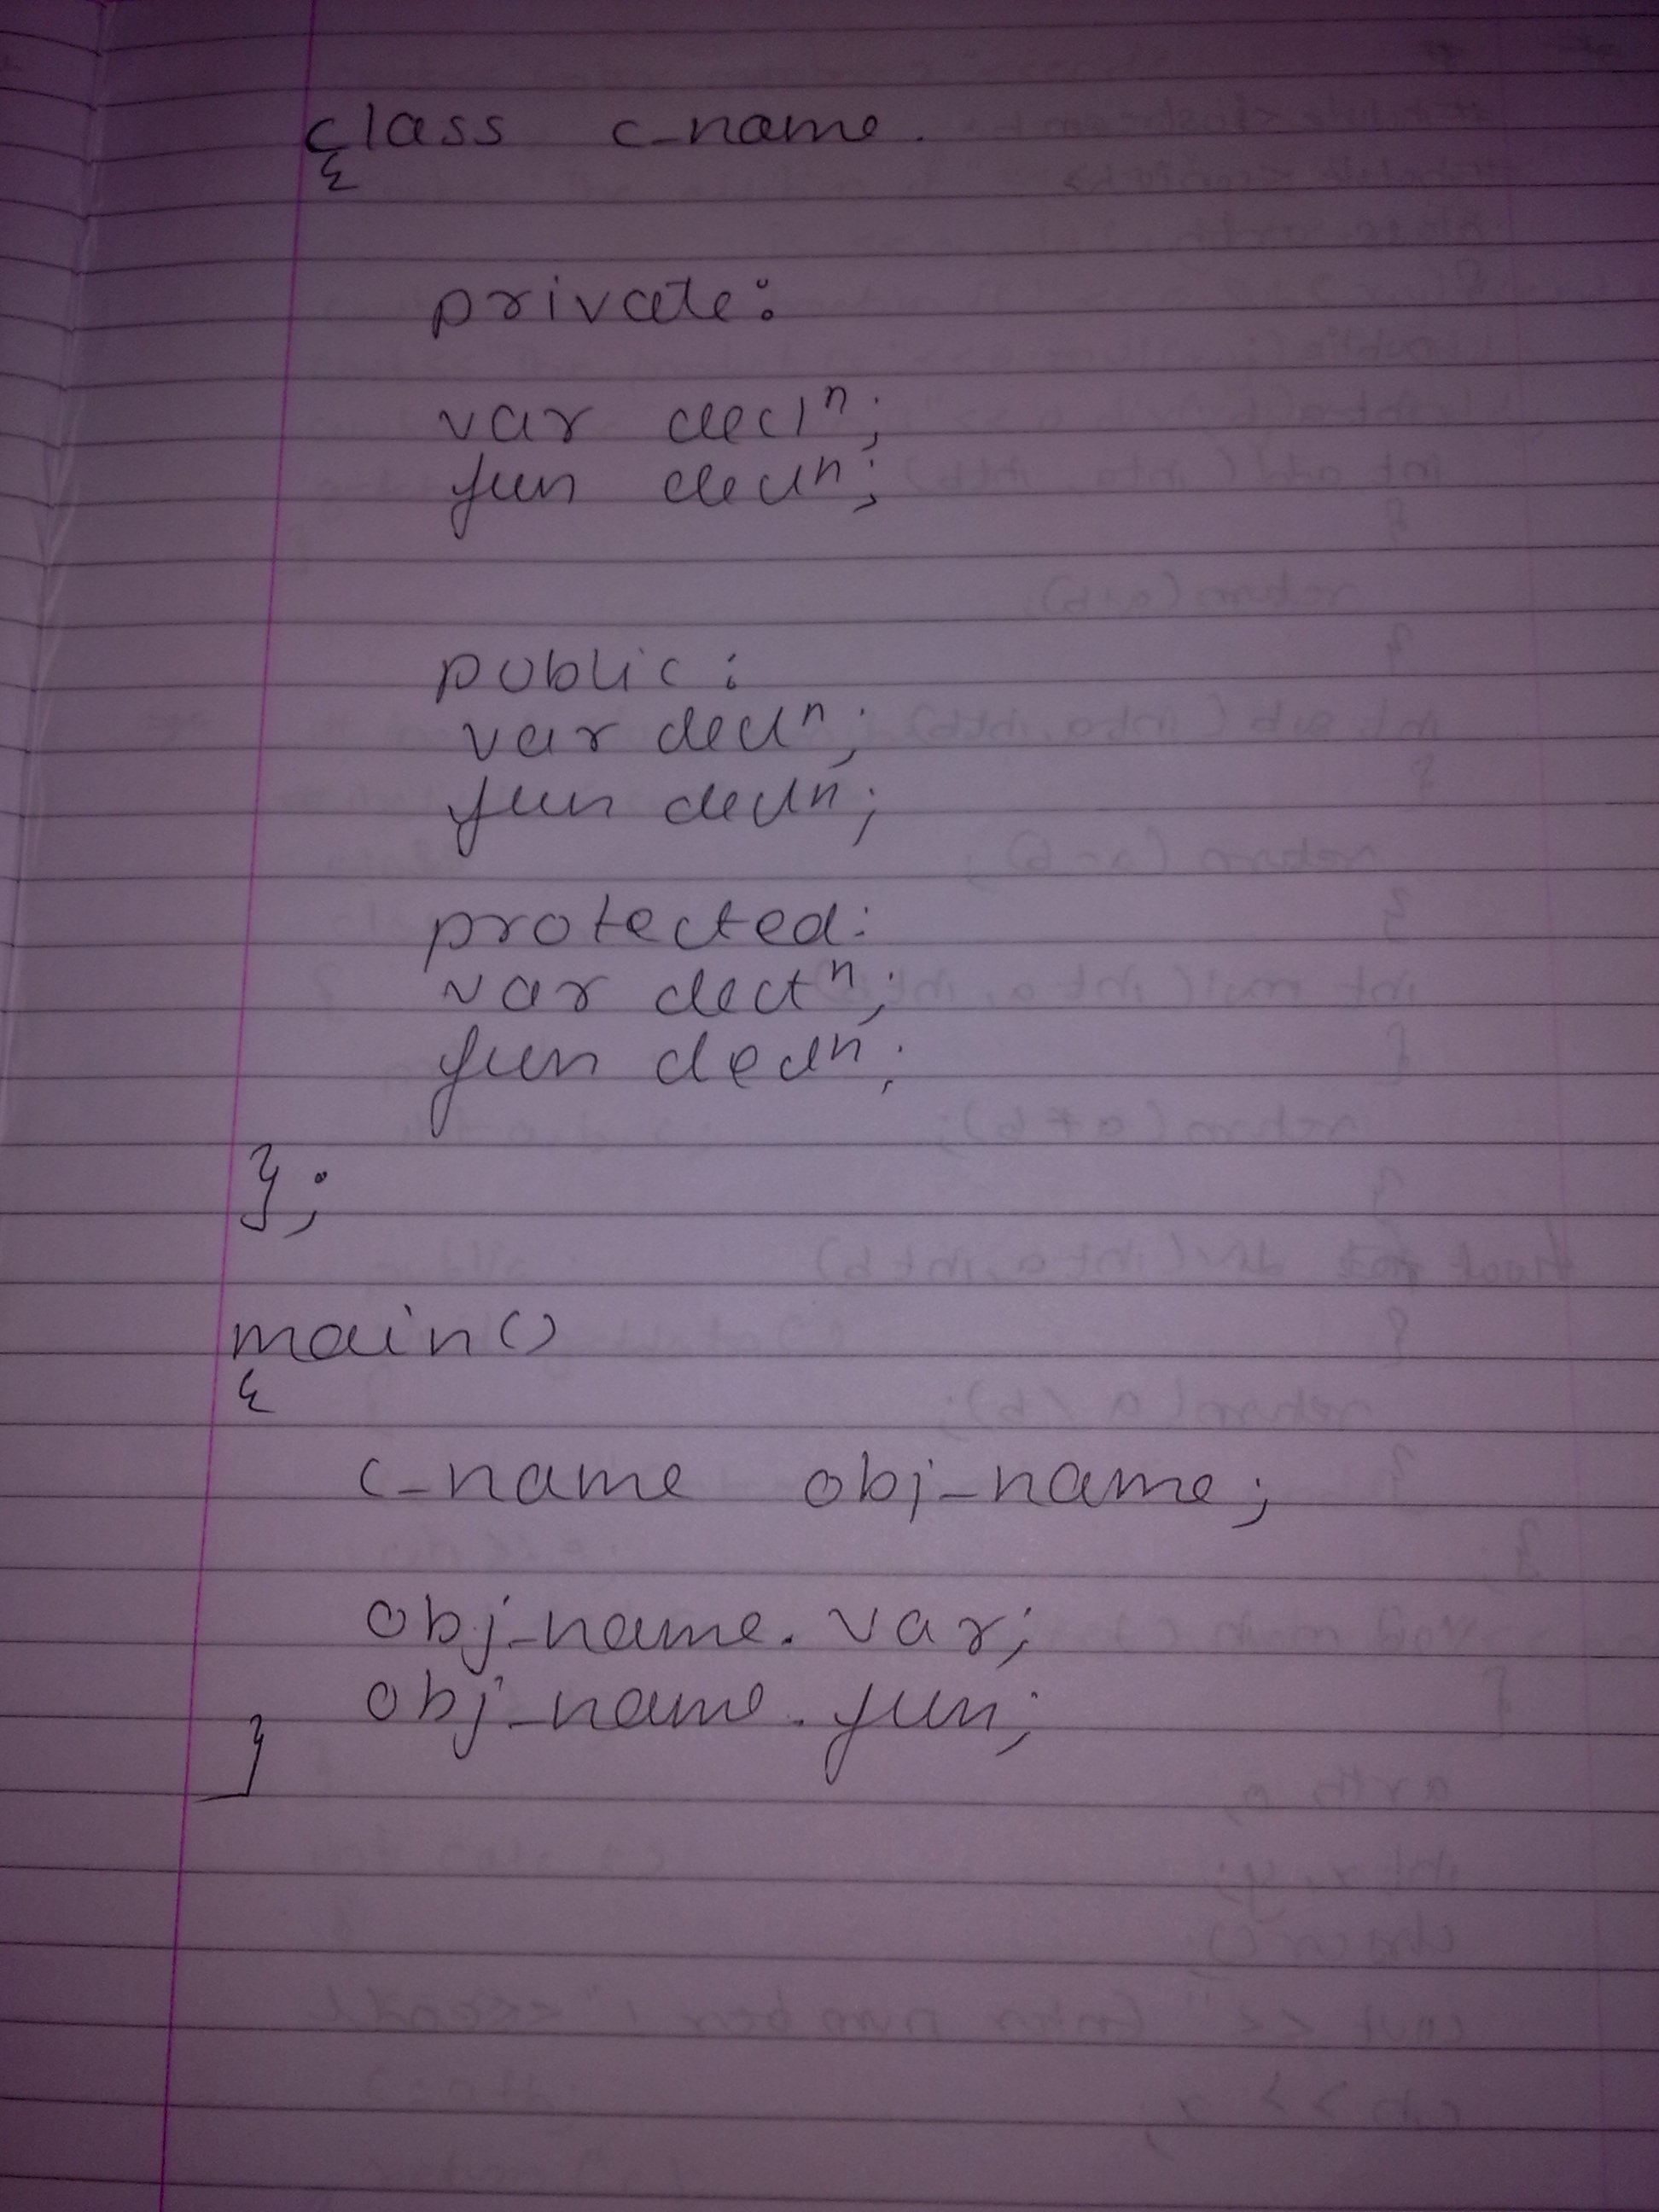 class c_name.
{
private:
var declⁿ;
fun declⁿ;
public:
var declⁿ;
fun declⁿ;
protected:
var declⁿ;
fun declⁿ;
};
main()
{
c_name obj_name;
obj_name.var;
obj_name.fun;
}